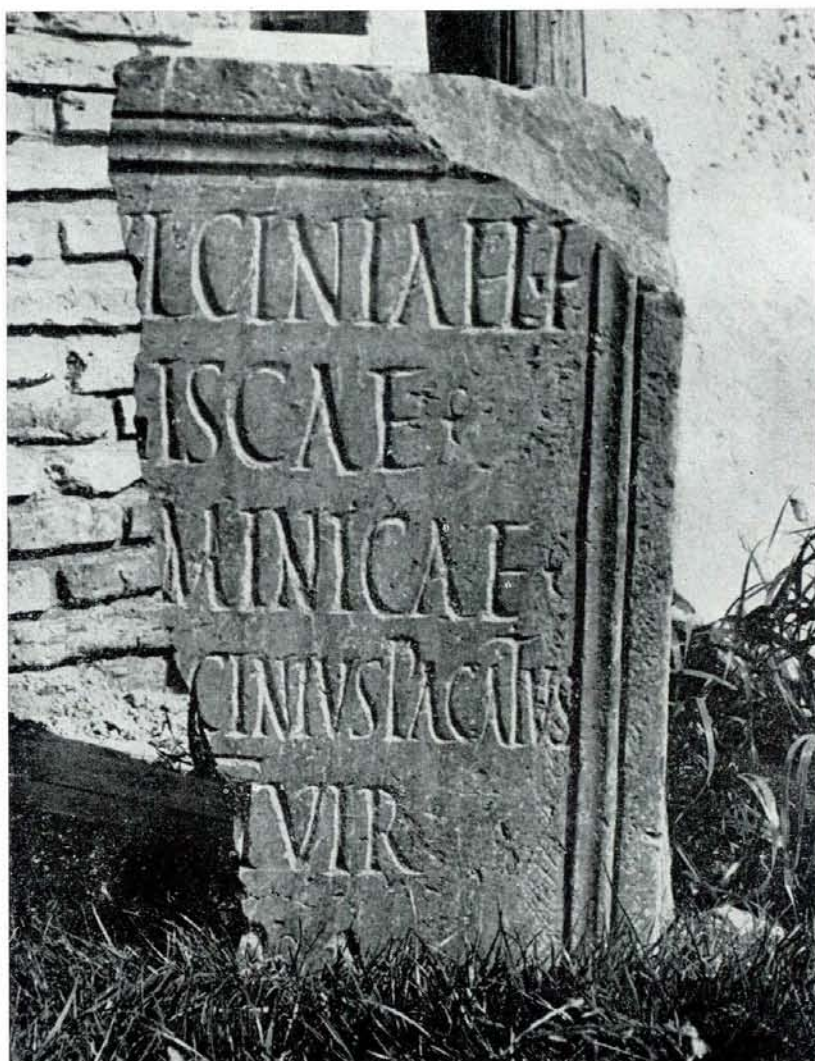 LCINIAE L F
ISCAE
MINICAE
CINIVS PACATVS
VIR